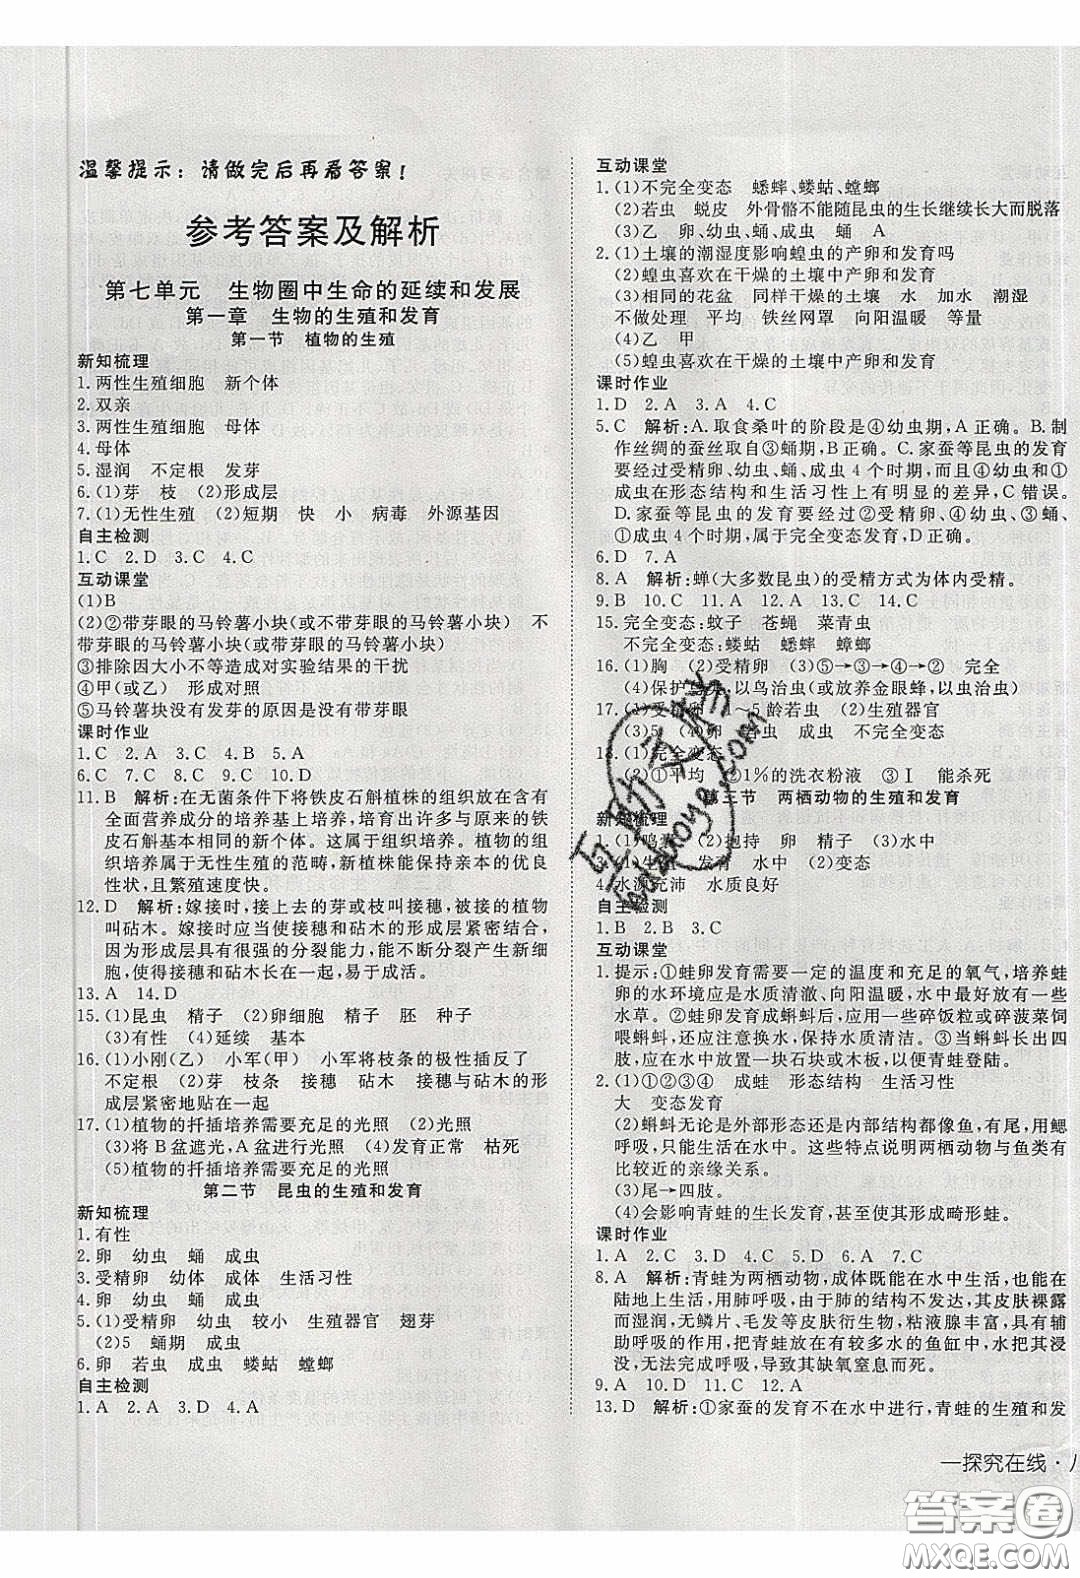 温馨提示：请做完后再看答案！
参考答案及解析
第七单元　生物圈中生命的延续和发展
第一章　生物的生殖和发育
第一节　植物的生殖
新知梳理
1.两性生殖细胞　新个体
2.双亲
3.两性生殖细胞　母体
4.母体
5.湿润　不定根　发芽
6.(1)芽　枝　(2)形成层
7.(1)无性生殖　(2)短期　快　小　病毒　外源基因
自主检测
1.C　2.D　3.C　4.C
互动课堂
(1)B
(2)②带芽眼的马铃薯小块(或不带芽眼的马铃薯小块)　不
带芽眼的马铃薯小块(或带芽眼的马铃薯小块)
③排除因大小不等造成对实验结果的干扰
④甲(或乙)　形成对照
⑤马铃薯没有发芽的原因是没有带芽眼
课时作业
1.C　2.A　3.C　4.B　5.A
6.C　7.C　8.C　9.C　10.D
11.B　解析:在无菌条件下将铁皮石斛植株的组织放在含有
全面营养成分的培养基上培养，培育出许多与原来的铁
皮石斛基本相同的新个体。这属于组织培养。植物的组
织培养属于无性生殖的范畴，新植株能保持亲本的优良
性状，且繁殖速度快。
12.D　解析:嫁接时，接上去的芽或枝叫接穗，被接的植物
叫砧木。嫁接时应当使接穗和砧木的形成层紧密结合，
因形成层具有很强的分裂能力，能不断分裂产生新细
胞，使得接穗和砧木长在一起，易于成活。
13.A　14.D
15.(1)昆虫　精子　(2)卵细胞　精子　胚　种子
(3)有性　(4)延续　基本
16.(1)小刚(乙)　小军(甲)　小军将枝条的极性插反了
不定根　(2)芽　枝条　接穗　砧木　接穗与砧木的形
成层紧密地贴在一起
17.(1)植物的扦插培养需要充足的光照　(2)光照
(3)将B盆遮光，A盆进行光照　(4)发育正常　枯死
(5)植物的扦插培养需要充足的光照
第二节　昆虫的生殖和发育
新知梳理
1.有性
2.卵　幼虫　蛹　成虫
3.受精卵　幼体　成体　生活习性
4.卵　幼虫　蛹　成虫
5.(1)受精卵　幼虫　较小　生殖器官　翅芽
(2)5　蛹期　成虫
6.卵　若虫　成虫　蝼蛄　蟑螂
自主检测
1.A　2.A　3.D　4.A
互动课堂
1.(1)不完全变态　蟋蟀、蝼蛄、蟑螂
(2)若虫　蜕皮　外骨骼不能随昆虫的生长继续长大而脱落
(3)乙　卵、幼虫、蛹、成虫　A
2.(1)土壤的潮湿度影响蝗虫的产卵和发育吗
(2)蝗虫喜欢在干燥的土壤中产卵和发育
(3)相同的花盆　同样干燥的土壤　水　加水　潮湿
不做处理　平均　铁丝网罩　向阳温暖　等量
(4)乙　甲
(5)蝗虫喜欢在干燥的土壤中产卵和发育
课时作业
1.D　2.A　3.A　4.C
5.C　解析:A.取食桑叶的阶段是④幼虫期，A正确。B.制
作丝绸的蚕丝取自③蛹期，B正确。C.家蚕等昆虫的发育
要经过受精卵、幼虫、蛹、成虫4个时期，而且④幼虫和①
成虫在形态结构和生活习性上有明显的差异，C错误。
D.家蚕等昆虫的发育要经过②受精卵、④幼虫、③蛹、
①成虫4个时期，属于完全变态发育，D正确。
6.D　7.A
8.A　解析:蝉(大多数昆虫)的受精方式为体内受精。
9.B　10.C　11.A　12.A　13.C　14.C
15.完全变态:蚊子　苍蝇　菜青虫
不完全变态:蝼蛄　蟋蟀　蟑螂
16.(1)胸　(2)受精卵　(3)⑤→③→④→②　完全
(4)保护　以鸟治虫(或放养金眼蜂，以虫治虫)
17.(1)受精卵　1～5龄若虫　(2)生殖器官
(3)5　(4)卵　若虫　成虫　不完全变态
18.(1)完全变态
(2)①平均　②1%的洗衣粉液　③Ⅰ　能杀死
第三节　两栖动物的生殖和发育
新知梳理
1.(1)鸣囊　(2)抱持　卵　精子　(3)水中
3.(1)生殖　发育　水中　(2)变态
4.水源充沛　水质良好
自主检测
1.B　2.B　3.C
互动课堂
1.提示:①蛙卵发育需要一定的温度和充足的氧气，培养蛙
卵的水环境应是水质清澈、向阳温暖，水中含有充足的氧
气的水域。②受精卵发育成蝌蚪后，应给些碎饭粒或碎菠菜饲
喂蝌蚪，还应注意换水，保持水质清洁。③当蝌蚪长出四
肢，应在水中放置一块石块或木板，以便青蛙登陆。
2.(1)①②③④　成蛙　形态结构　生活习性
大　变态发育
(2)蝌蚪无论是外部形态还是内部结构都像鱼，有尾，用鳃
呼吸，只能生活在水中。这些特点说明两栖动物与鱼类具
有比较近的亲缘关系。
(3)尾→四肢。
(4)会影响青蛙的生长发育，甚至使其形成畸形蛙。
课时作业
1.A　2.C　3.D　4.D　5.D　6.A　7.C
8.A　解析:青蛙为两栖动物，成体既能在水中生活，也能在
陆地上生活，用肺呼吸，由于肺的结构不发达，其皮肤裸露
而湿润，无鳞片、毛发等皮肤衍生物，粘液腺丰富，具有
辅助呼吸的作用，把青蛙放在有较多水的鱼缸中，时间一长，皮肤浸
没，无法完成呼吸，导致其缺氧窒息而死。
9.A　10.D　11.C　12.A
13.D　解析:①家蚕的发育不在水中进行，青蛙的生殖和发
—探究在线·八
答案圈
MXQE.COM